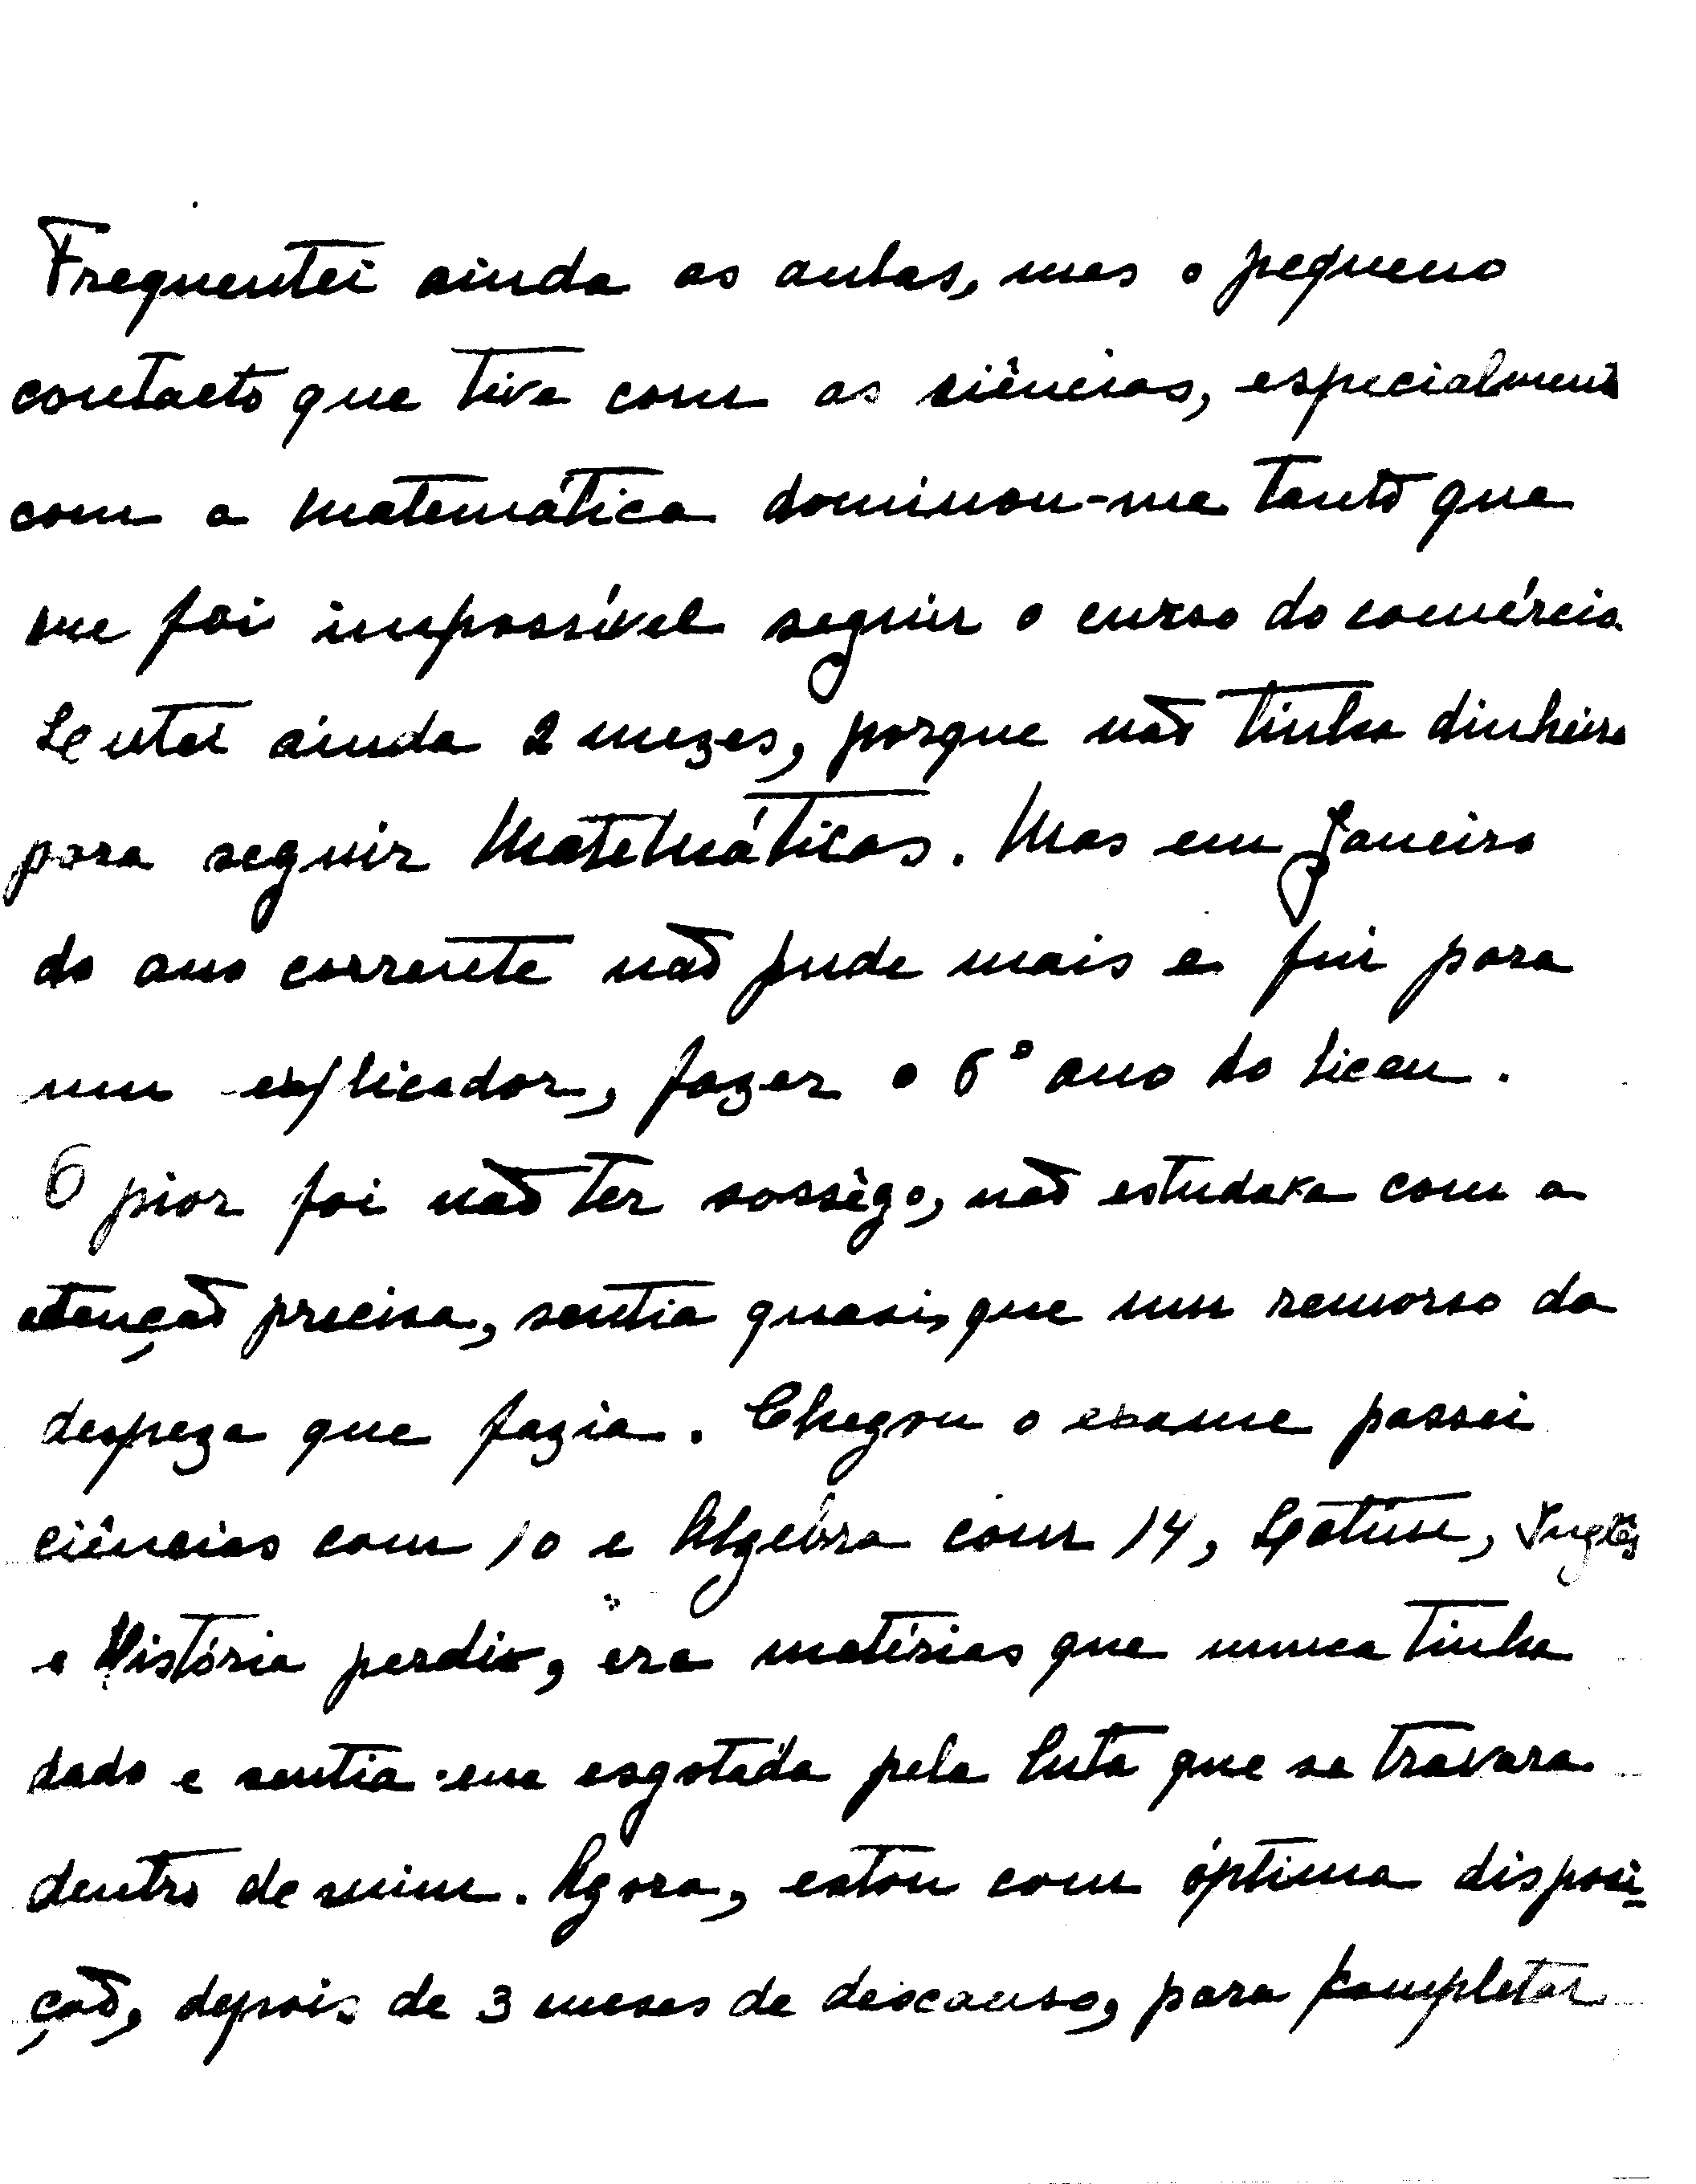 Frequentei ainda as aulas, mas o pequeno
contacto que tive com as ciências, especialmente
com a matemática dominou-me tanto que
me foi impossível seguir o curso do comércio.
Lutei ainda 2 mezes, porque não tinha dinheiro
para seguir Matemáticas. Mas em Janeiro
do ano corrente não pude mais e fui para
um explicador, fazer o 6º ano do liceu.
O pior foi não ter sossêgo, não estudava com a
atenção precisa, sentia quasi que um remorso da
despeza que fazia. Chegou o exame passei
ciências com 10 e Algebra com 14, Latim, Inglês
e História perdi, era matérias que nunca tinha
dado e sentia-me esgotada pela luta que se travara
dentro de mim. Agora, estou com óptima disposi-
ção, depois de 3 meses de descanso, para completar